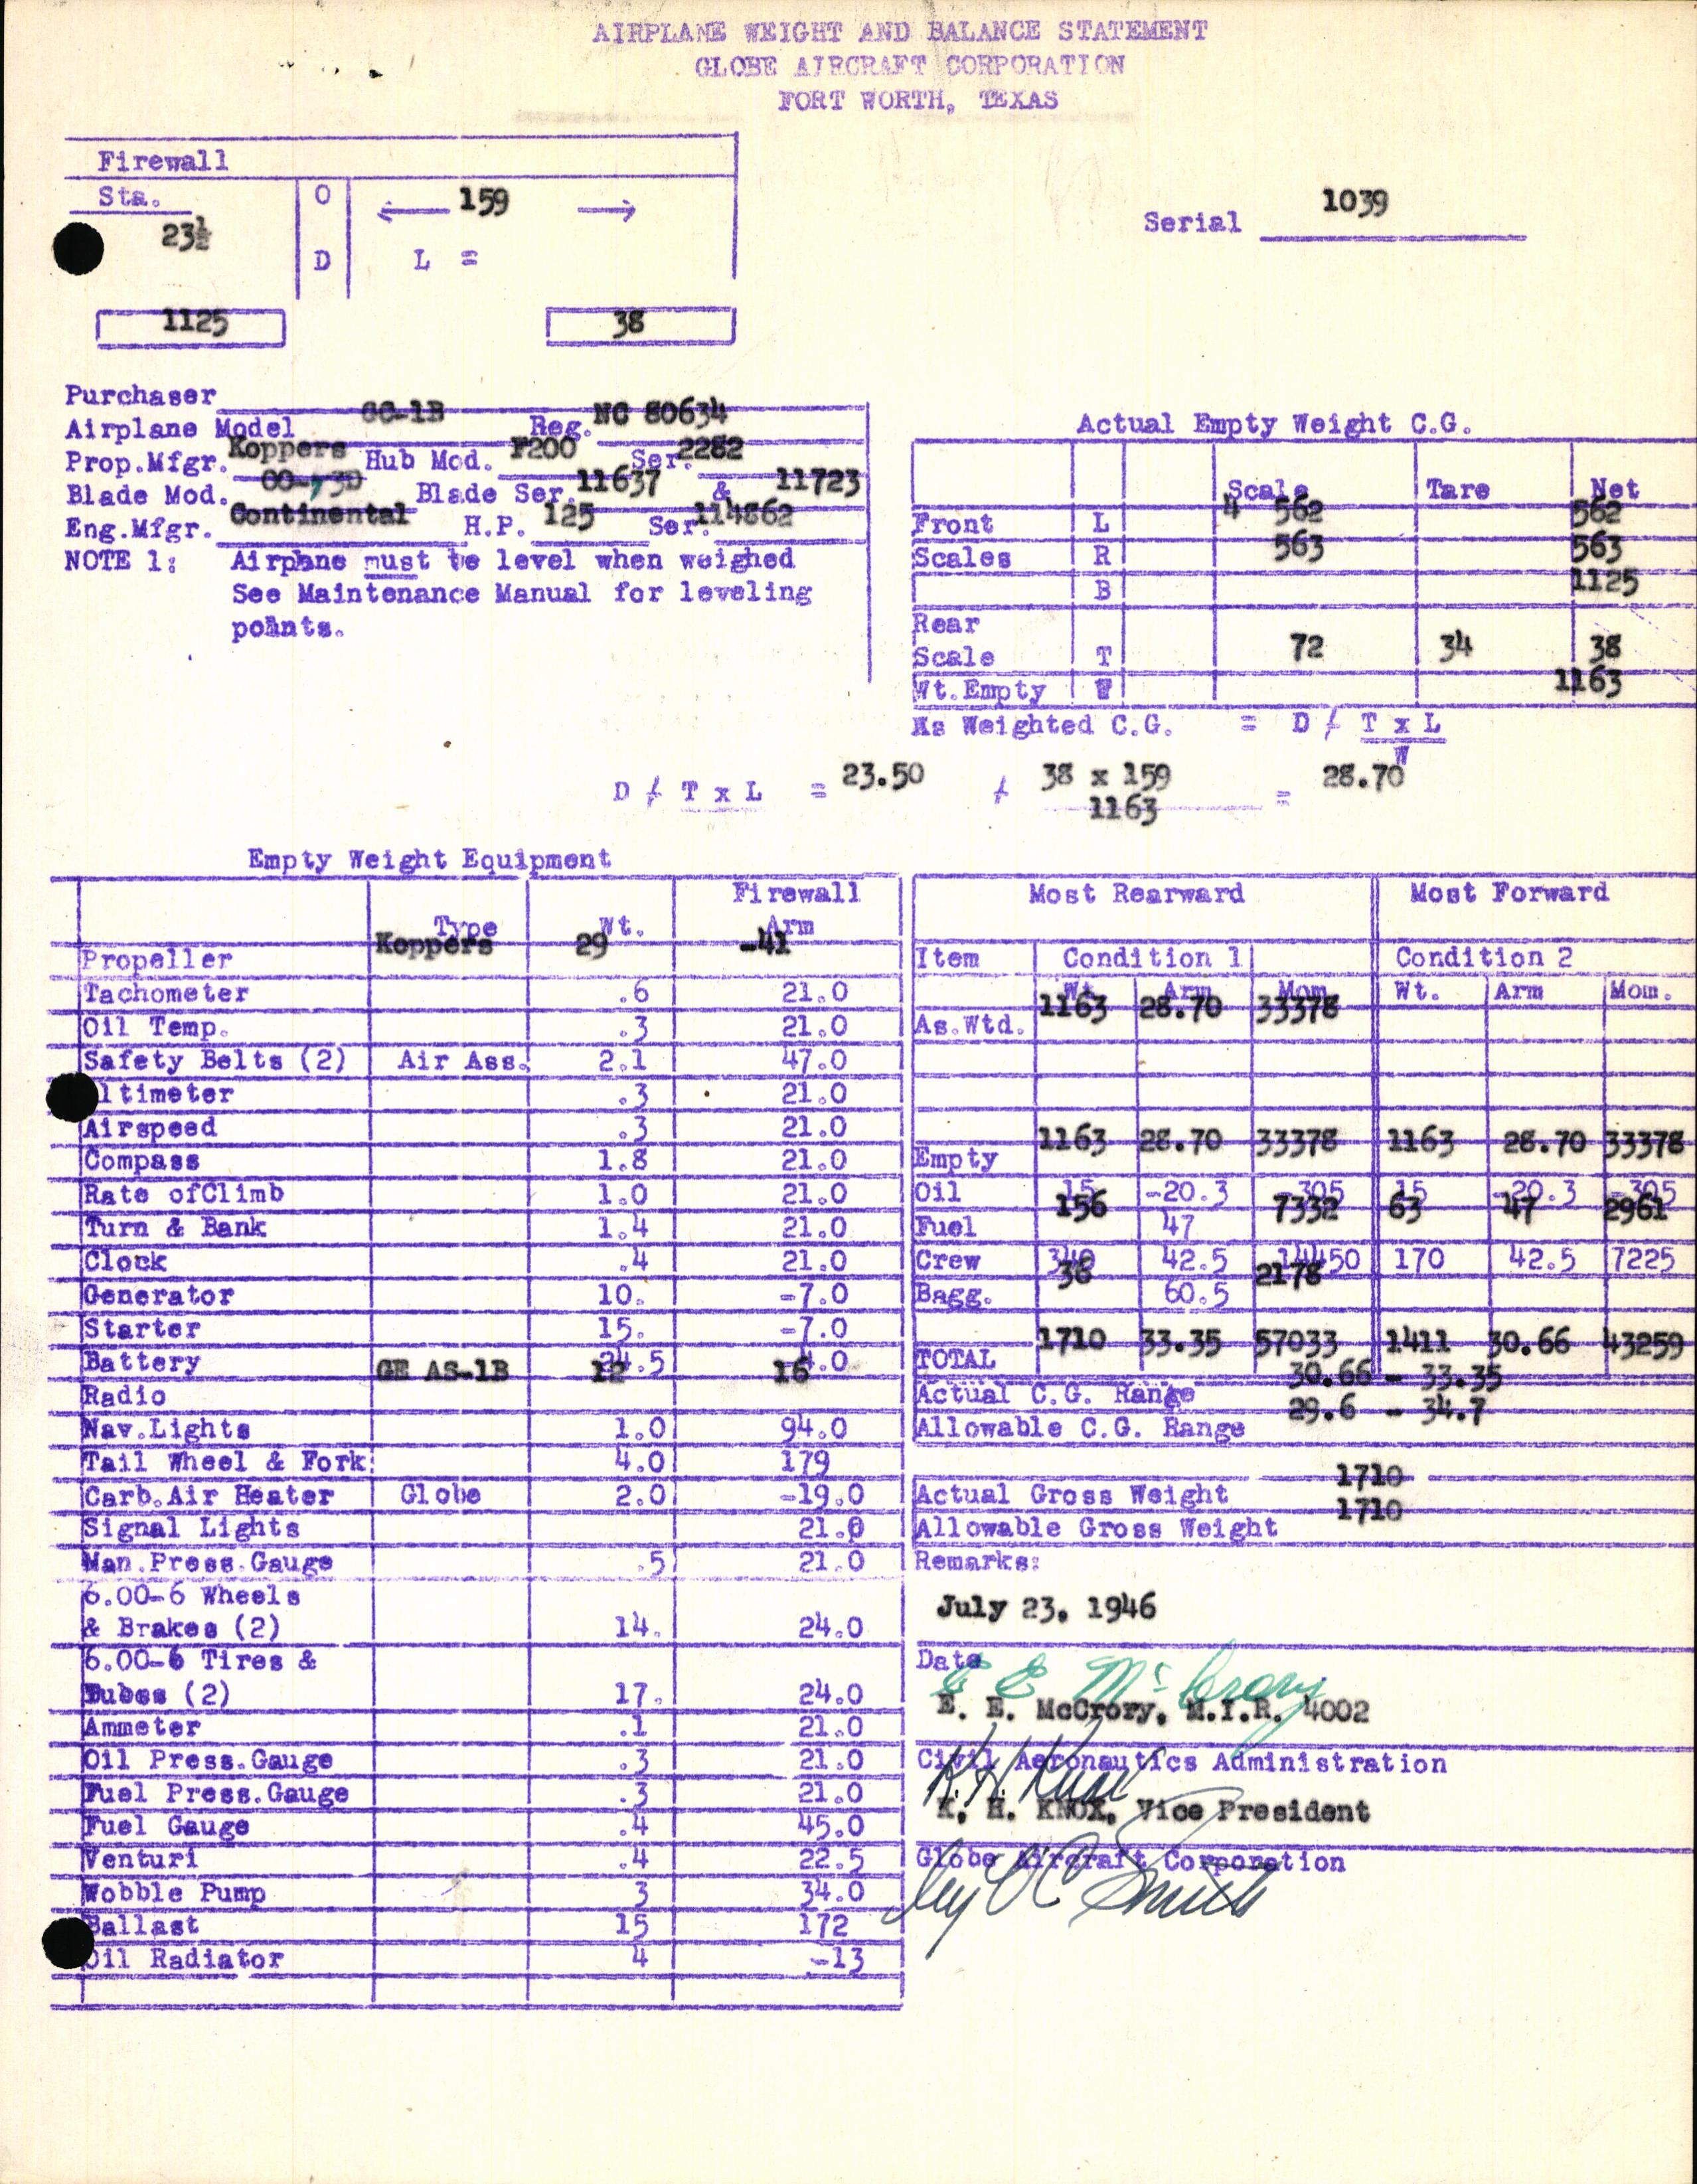 AIRPLANE WEIGHT AND BALANCE STATEMENT
GLOBE AIRCRAFT CORPORATION
FORT WORTH, TEXAS
Firewall
Sta. O ← 159 →
23½
D L =
Serial 1039
1125 38
Purchaser
Airplane Model GC-1B Reg. NC 80634
Prop.Mfgr. Koppers Hub Mod. F200 Ser. 2282
Blade Mod. Blade Ser. 11637 & 11723
Eng.Mfgr. Continental H.P. 125 Ser. 114862
NOTE 1: Airplane must be level when weighed
See Maintenance Manual for leveling
points.
Actual Empty Weight C.G.
Scale Tare Net
Front L 4 562 562
Scales R 563 563
B 1125
Rear
Scale T 72 34 38
Wt.Empty W 1163
As Weighted C.G. = D / T x L
W
D / T x L = 23.50 / 38 x 159 = 28.70
1163
Empty Weight Equipment
Firewall
Type Wt. Arm
Propeller Koppers 29 -41
Tachometer .6 21.0
Oil Temp. .3 21.0
Safety Belts (2) Air Ass. 2.1 47.0
ltimeter .3 21.0
Airspeed .3 21.0
Compass 1.8 21.0
Rate ofClimb 1.0 21.0
Turn & Bank 1.4 21.0
Clock .4 21.0
Generator 10. -7.0
Starter 15. -7.0
Battery 24.5 .0
Radio GE AS-1B 12 16
Nav.Lights 1.0 94.0
Tail Wheel & Fork 4.0 179
Carb.Air Heater Globe 2.0 -19.0
Signal Lights 21.0
Man.Press.Gauge .5 21.0
6.00-6 Wheels
& Brakes (2) 14. 24.0
6.00-6 Tires &
Tubes (2) 17. 24.0
Ammeter .1 21.0
Oil Press.Gauge .3 21.0
Fuel Press.Gauge .3 21.0
Fuel Gauge .4 45.0
Venturi .4 22.5
Wobble Pump 3 34.0
Ballast 15 172
Oil Radiator 4 -13
Most Rearward Most Forward
Item Condition 1 Condition 2
Wt. Arm Mom. Wt. Arm Mom.
As.Wtd. 1163 28.70 33378
Empty 1163 28.70 33378 1163 28.70 33378
Oil 15 -20.3 -305 15 -20.3 -305
Fuel 156 47 7332 63 47 2961
Crew 340 42.5 14450 170 42.5 7225
Bagg. 36 60.5 2178
TOTAL 1710 33.35 57033 1411 30.66 43259
Actual C.G. Range 30.66 - 33.35
Allowable C.G. Range 29.6 - 34.7
Actual Gross Weight 1710
Allowable Gross Weight 1710
Remarks:
July 23, 1946
Date
E E McCrory
E. E. McCrory, M.I.R. 4002
Civil Aeronautics Administration
K. H. Knox
K. H. KNOX, Vice President
Globe Aircraft Corporation
by O C Smith